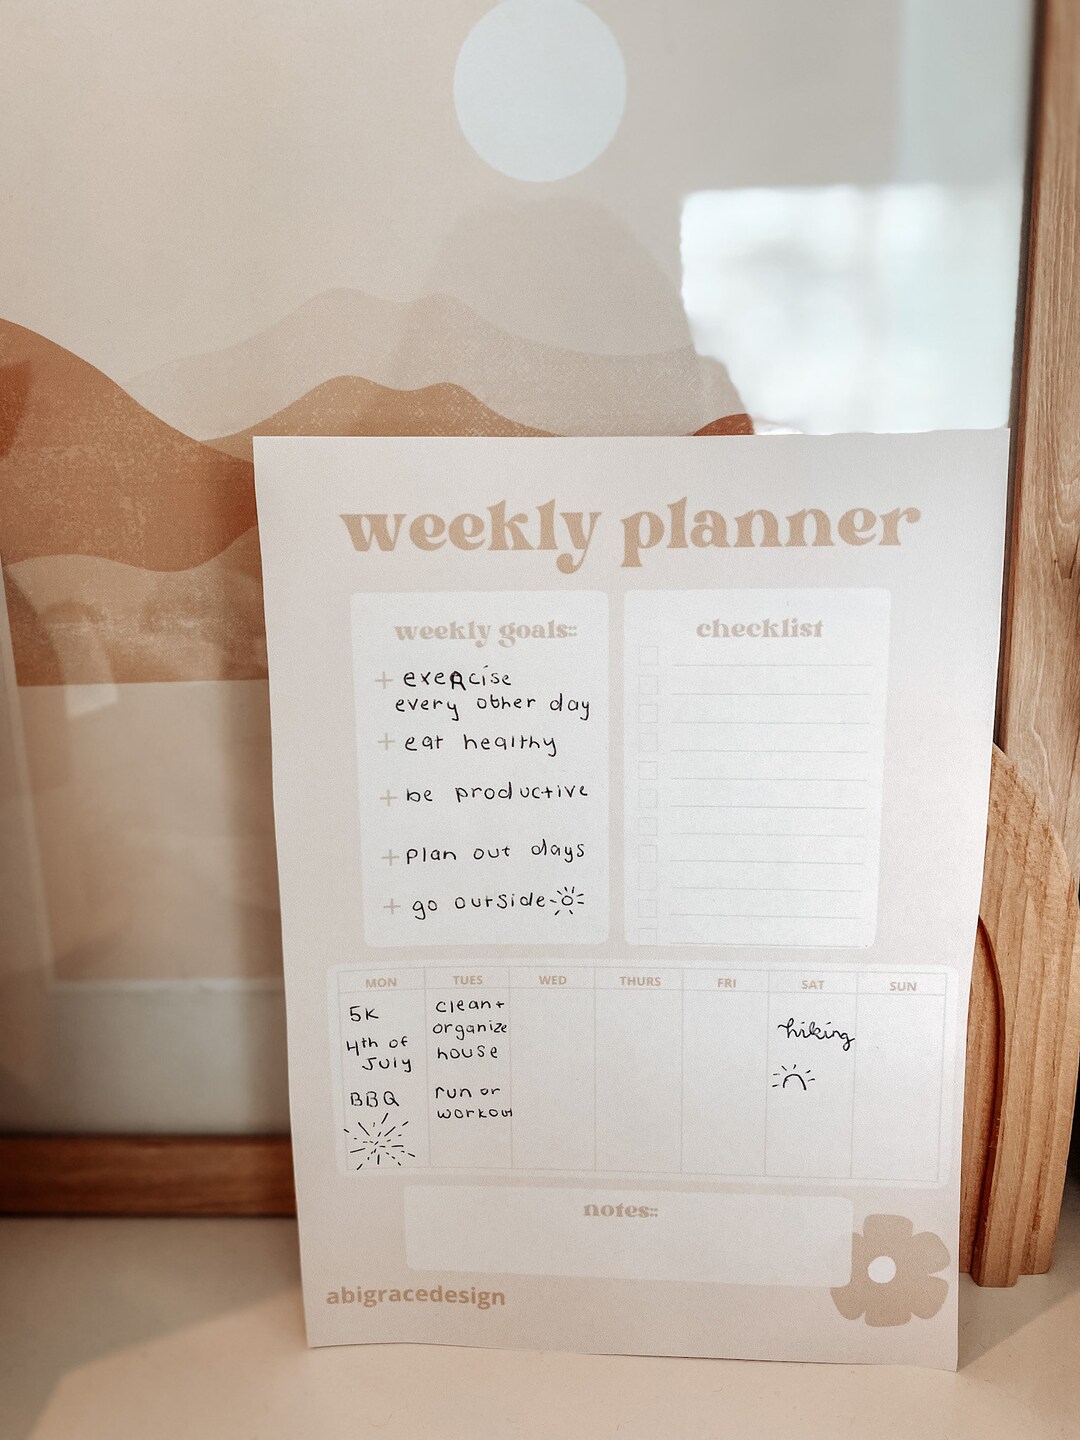 weekly planner
weekly goals::
+ exercise
every other day
+ eat healthy
+ be productive
+ plan out days
+ go outside
checklist
MON TUES WED THURS FRI SAT SUN
5K
4th of
July
BBQ
clean +
organize
house
run or
workout
hiking
notes::
abigracedesign